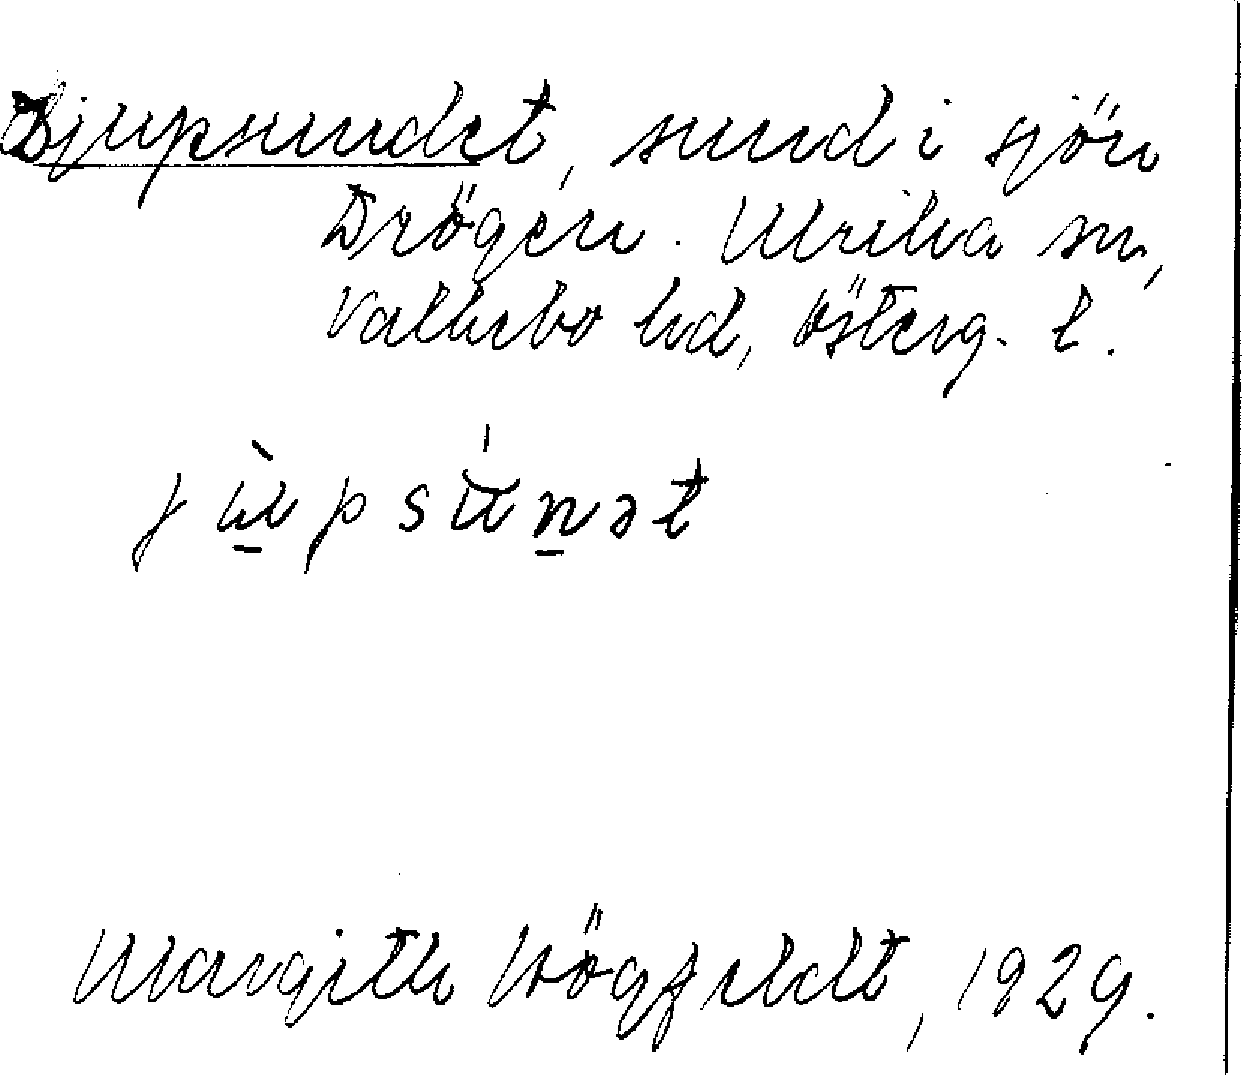 Djupsundet, sund i sjön
Drögen. Ulrika sn,
Vallebo hd, Österg. l.
jùpsúnət
Margith Högfeldt, 1929.